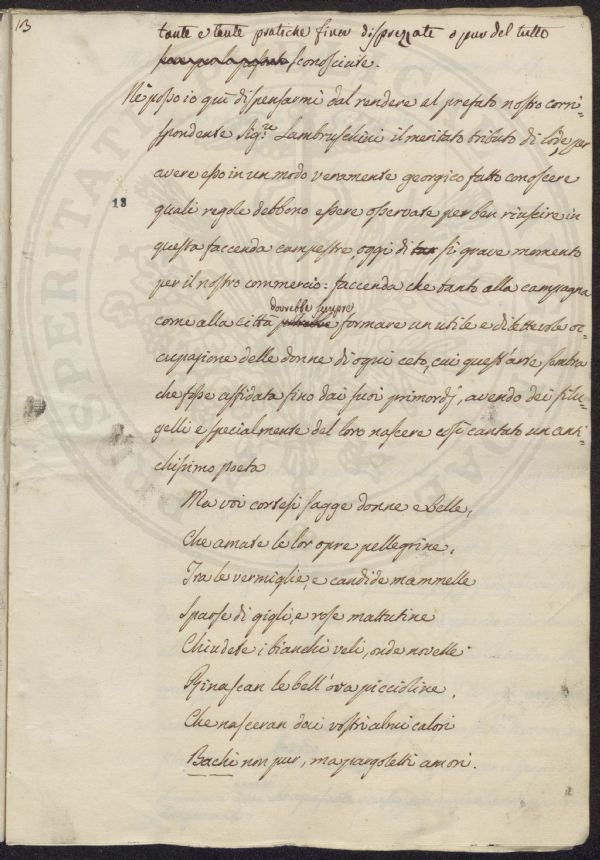 13
tante e tante pratiche finor disprezzate o pur del tutto
sconosciute.
Nè posso io quì dispensarmi dal rendere al prefato nostro corri=
spondente Sigre. Lambruschini il meritato tributo di lode, per
avere esso in un modo veramente georgico fatto conoscere
18
quali regole debbono essere osservate per ben riuscire in
questa faccenda campestre, oggi di sì grave momento
per il nostro commercio: faccenda che tanto alla campagna
dovrebbe sempre
come alla città potrebbe formare un utile e dilettevole oc=
cupazione delle donne di ogni ceto, cui quest'arte sembra
che fosse affidata fino dai suoi primordj, avendo dei filu=
gelli e specialmente del loro nascere così cantato un anti=
chissimo poeta
Ma voi cortesi sagge donne e belle,
Che amate le lor opre pellegrine,
Tra le vermiglie, e candide mammelle
Sparse di gigli, e rose mattutine
Chiudete i bianchi veli, onde novelle
Rinascan le bell'ova piccioline,
Che nasceran dai vostri almi calori
Bachi non pur, ma pargoletti amori.